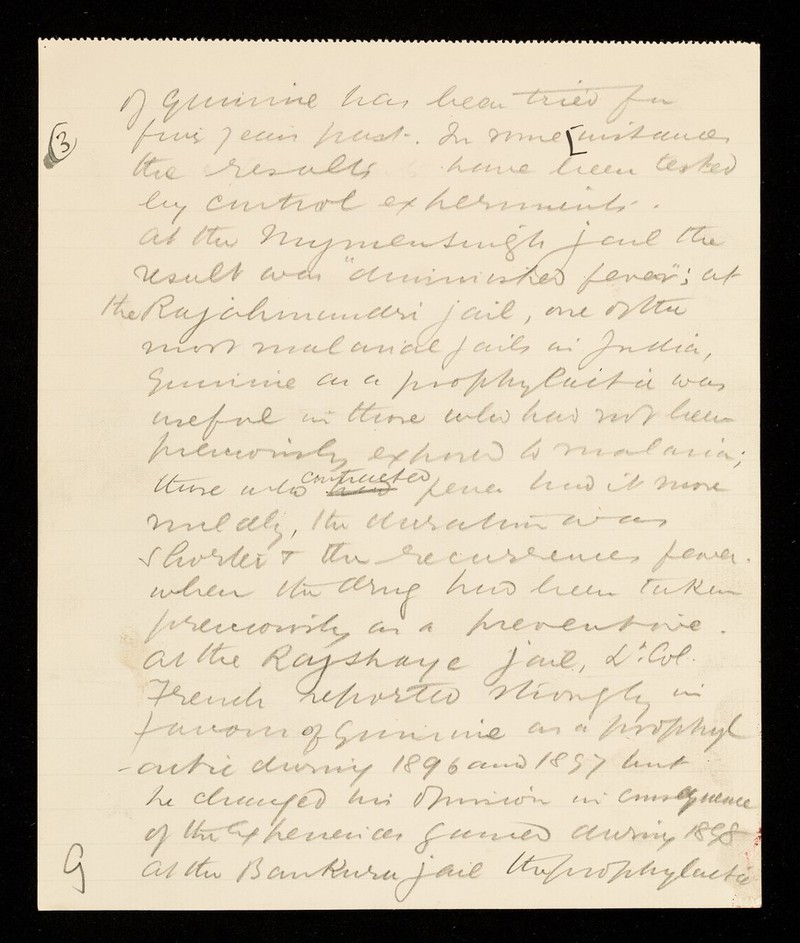 of Quinine has been tried for
five years past. In some [instances
(3)
the results have been tested
by control experiments.
At the Mymensingh jail the
result was "diminished fever"; at
the Rajahmundri jail, one of the
most malarial jails in India,
Quinine as a prophylactic was
useful in those who had not been
previously exposed to malaria;
those who contracted had fever had it more
mildly, the duration was
shorter & the recurrences fewer.
when the drug had been taken
previously as a preventive.
At the Rajshaye jail, Lt. Col.
French reported strongly in
favour of Quinine as a prophyl
-actic during 1896 and 1897 but
he changed his opinion in consequence
of the experiences gained during 1898
At the Bankura jail the prophylactic
G